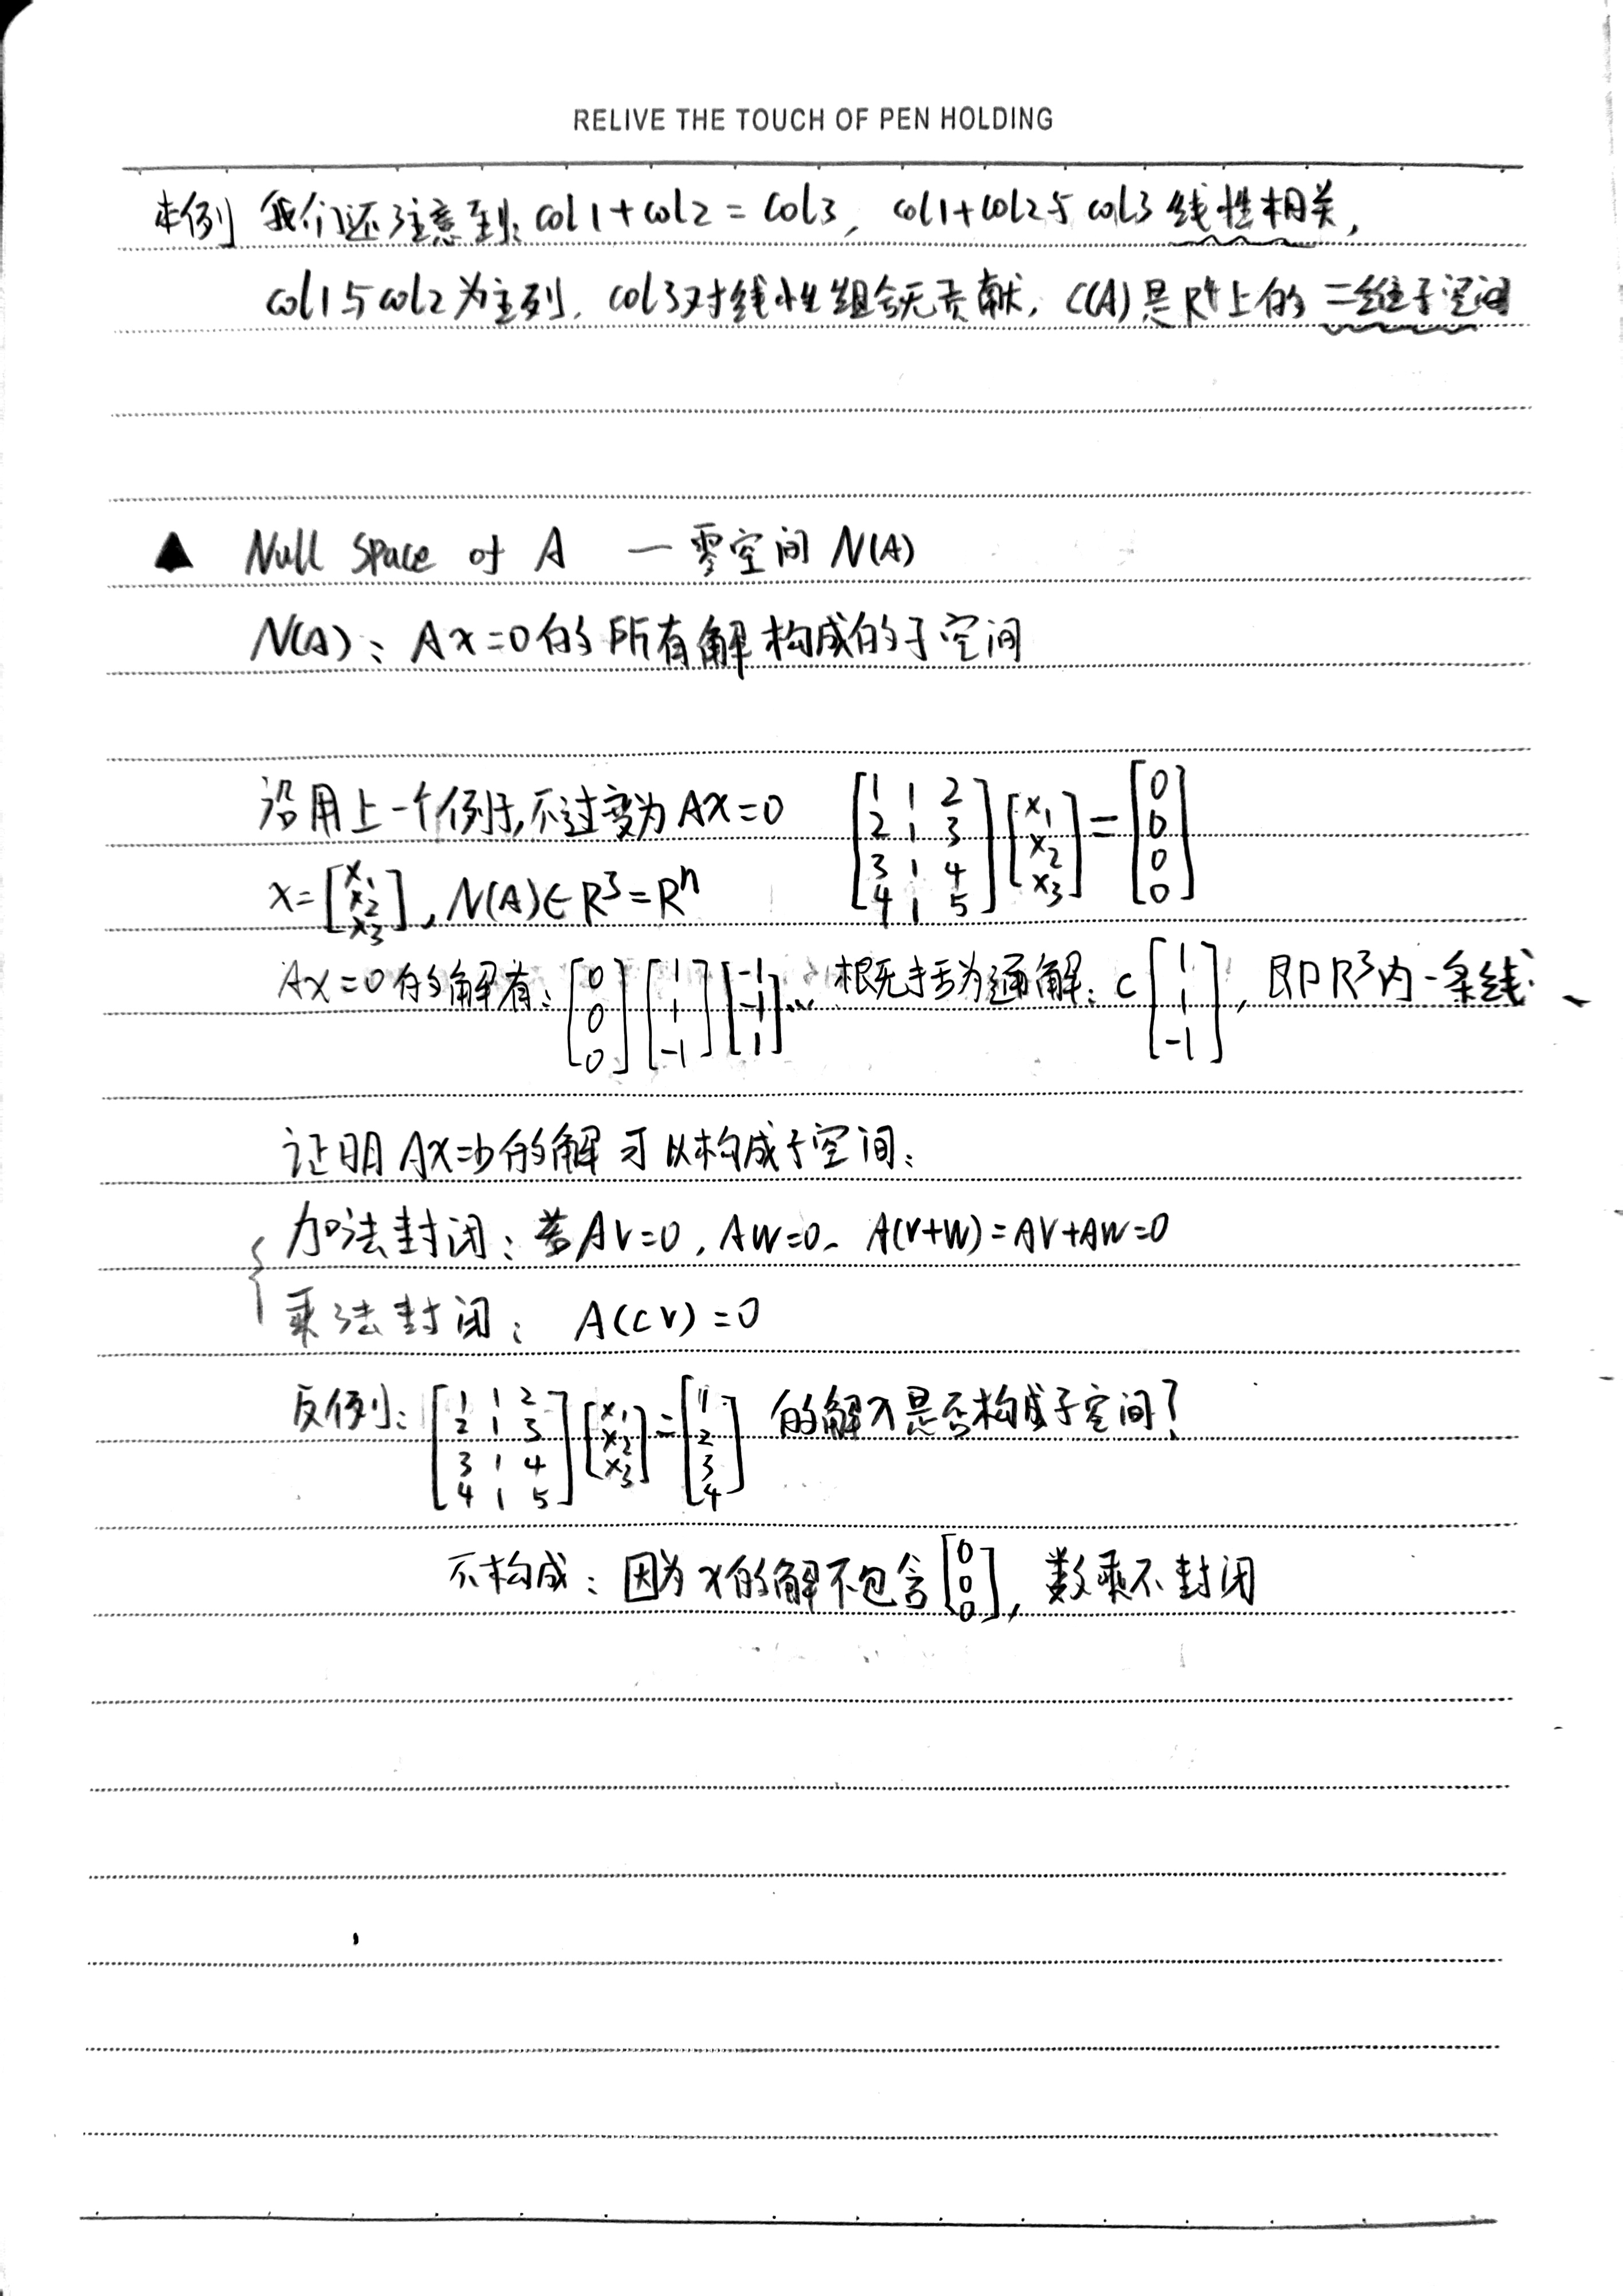 RELIVE THE TOUCH OF PEN HOLDING
本例 我们还注意到: col1+col2=col3, col1+col2与col3线性相关,
col1与col2为主列, col3对线性组合无贡献, C(A)是R⁴上的二维子空间
▲ Null Space of A — 零空间 N(A)
N(A): Ax=0的所有解构成的子空间
沿用上一个例子,不过变为Ax=0 [1 1 2; 2 1 3; 3 1 4; 4 1 5][x₁; x₂; x₃]=[0; 0; 0; 0]
x=[x₁; x₂; x₃], N(A)∈R³=Rⁿ
Ax=0的解有: [0; 0; 0][1; 1; -1][-1; -1; 1]... 概括为通解: c[1; 1; -1], 即R³内一条线
证明Ax=b的解可以构成子空间:
加法封闭: 若Av=0, Aw=0, A(v+w)=Av+Aw=0
乘法封闭: A(cv)=0
反例: [1 1 2; 2 1 3; 3 1 4; 4 1 5][x₁; x₂; x₃]=[1; 2; 3; 4] 的解x是否构成子空间?
不构成: 因为x的解不包含[0; 0; 0], 数乘不封闭